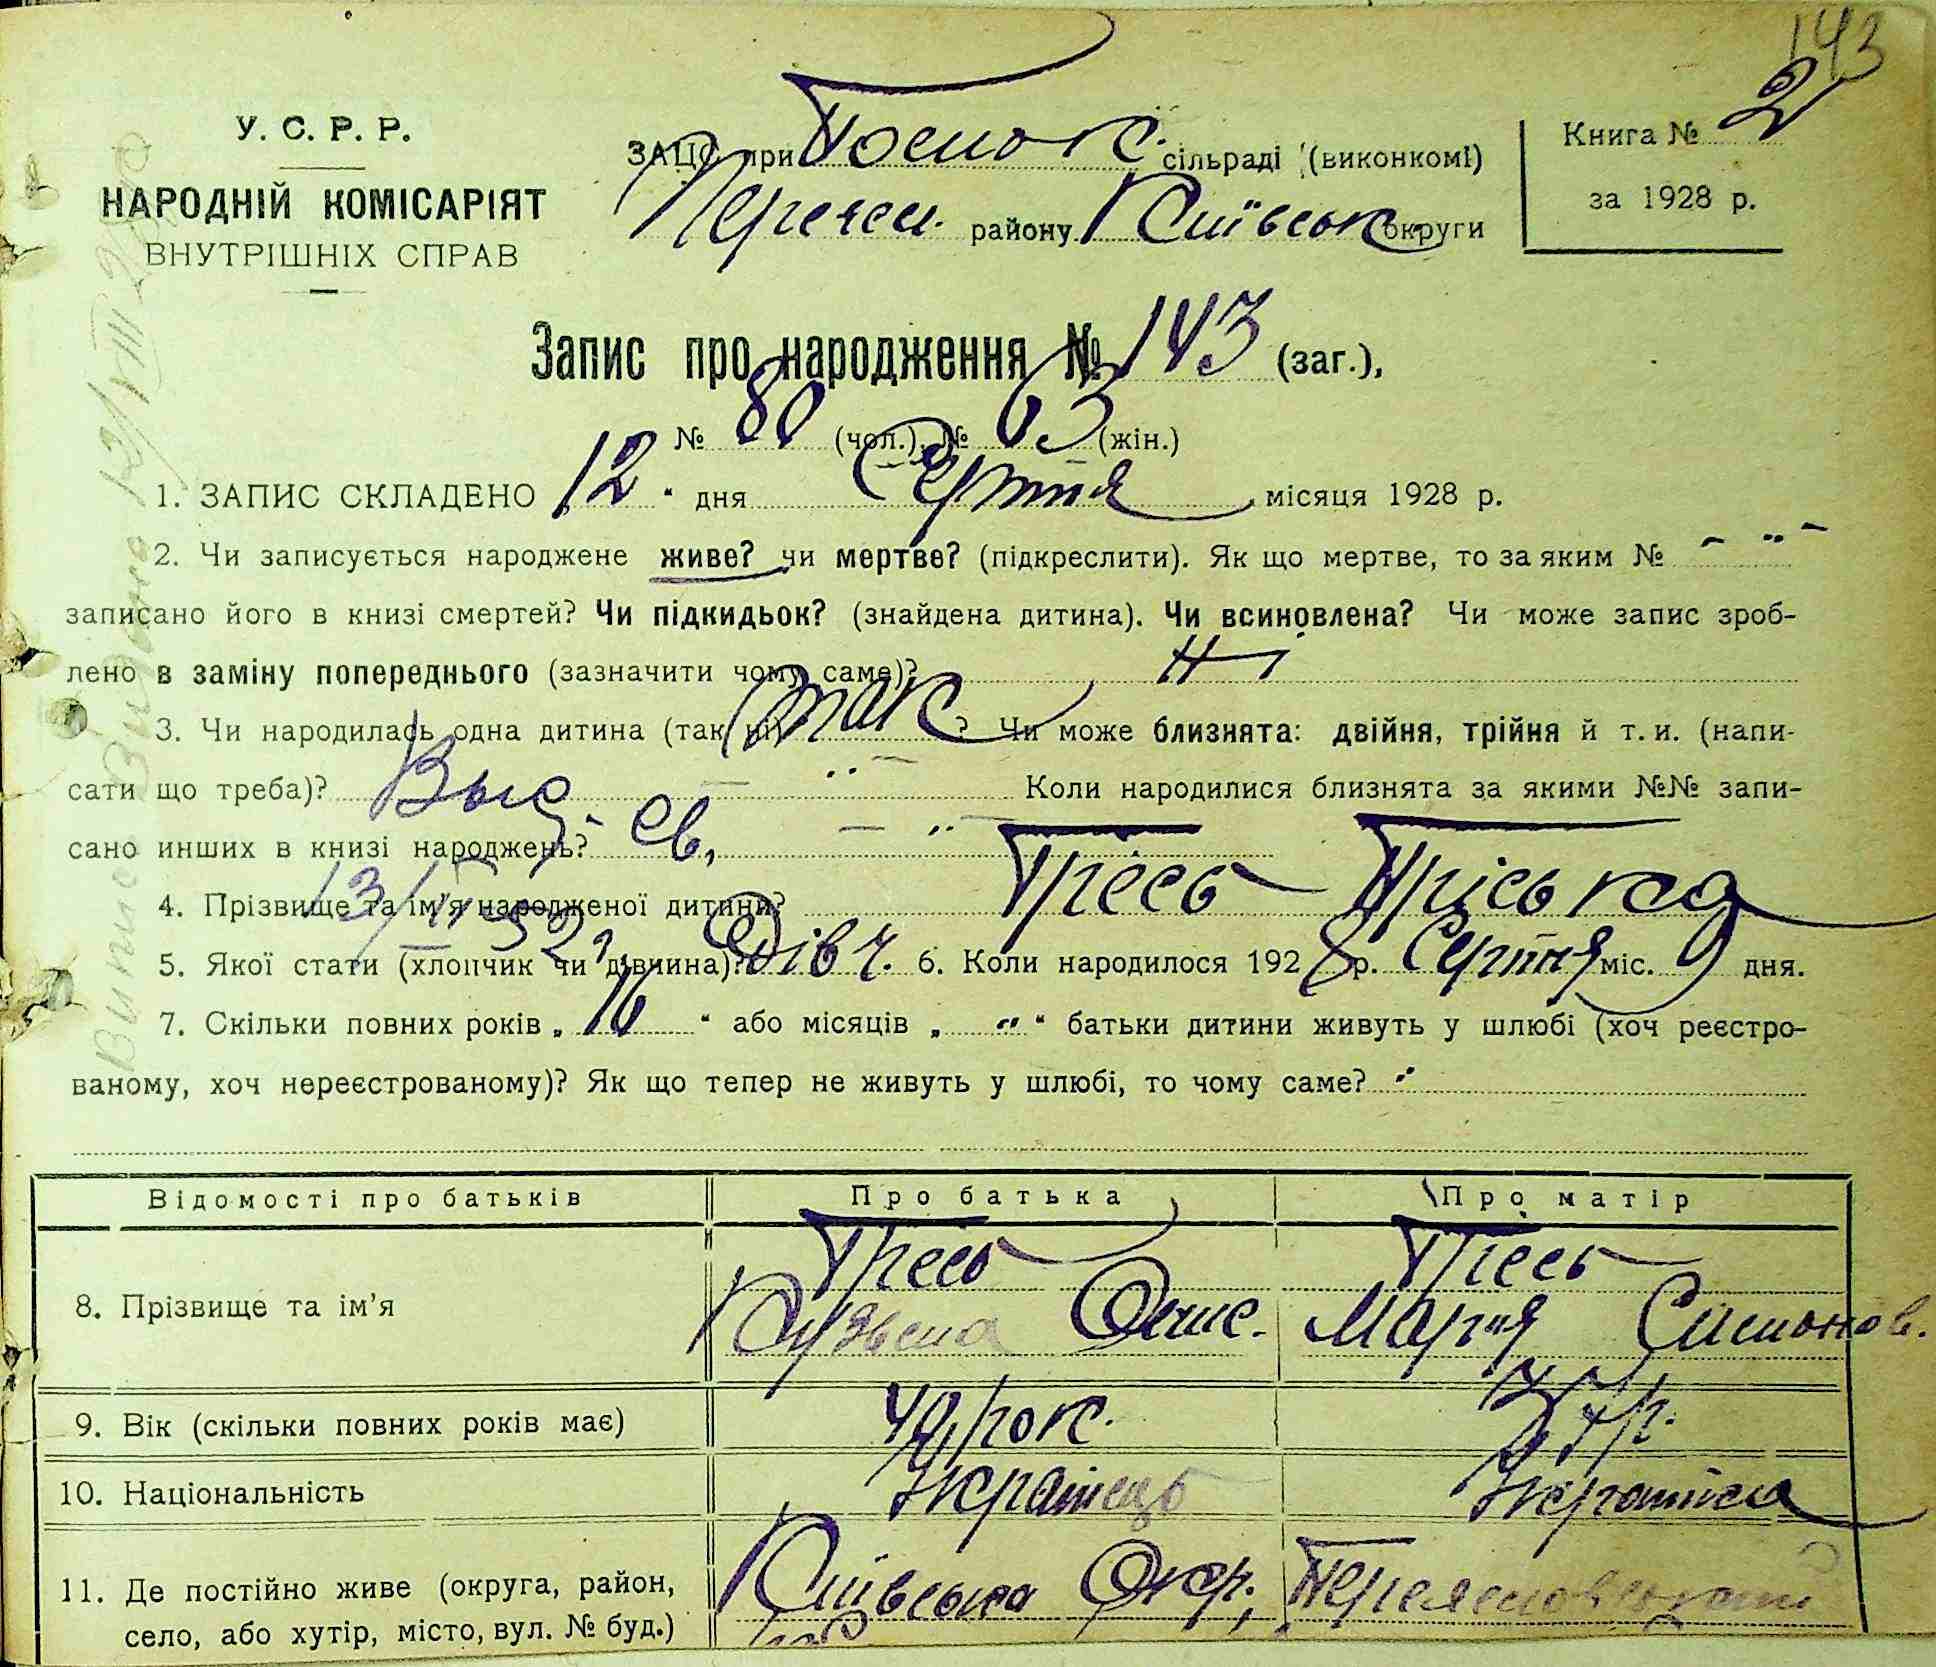 143
У. С. Р. Р.
НАРОДНІЙ КОМІСАРІЯТ
ВНУТРІШНІХ СПРАВ
ЗАЦС при сільраді (виконкомі)
району Київськ. округи
Книга № 2
за 1928 р.
Запис про народження № 143 (заг.),
№ 80 (чол.), № 63 (жін.)
1. ЗАПИС СКЛАДЕНО „12“ дня Серпня місяця 1928 р.
2. Чи записується народжене живе? чи мертве? (підкреслити). Як що мертве, то за яким № - " -
записано його в книзі смертей? Чи підкидьок? (знайдена дитина). Чи всиновлена? Чи може запис зроб-
лено в заміну попереднього (зазначити чому саме)? Ні
3. Чи народилась одна дитина (так, ні) так ? Чи може близнята: двійня, трійня й т. и. (напи-
сати що треба)? - " - Коли народилися близнята за якими №№ запи-
сано инших в книзі народжень? - " -
Выд. св.
4. Прізвище та ім'я народженої дитини? Пріська
5. Якої стати (хлопчик чи дівчина)? Дівч. 6. Коли народилося 1928 р. Серпня міс. 9 дня.
7. Скільки повних років „16“ або місяців „ " “ батьки дитини живуть у шлюбі (хоч реєстро-
ваному, хоч нереєстрованому)? Як що тепер не живуть у шлюбі, то чому саме? "
Відомості про батьків Про батька Про матір
8. Прізвище та ім'я
Кузьма Денис. Мария Симонов.
9. Вік (скільки повних років має) рок. 37 р.
10. Національність Українець Українка
11. Де постійно живе (округа, район, Київська Окр., Переясловський
село, або хутір, місто, вул. № буд.)